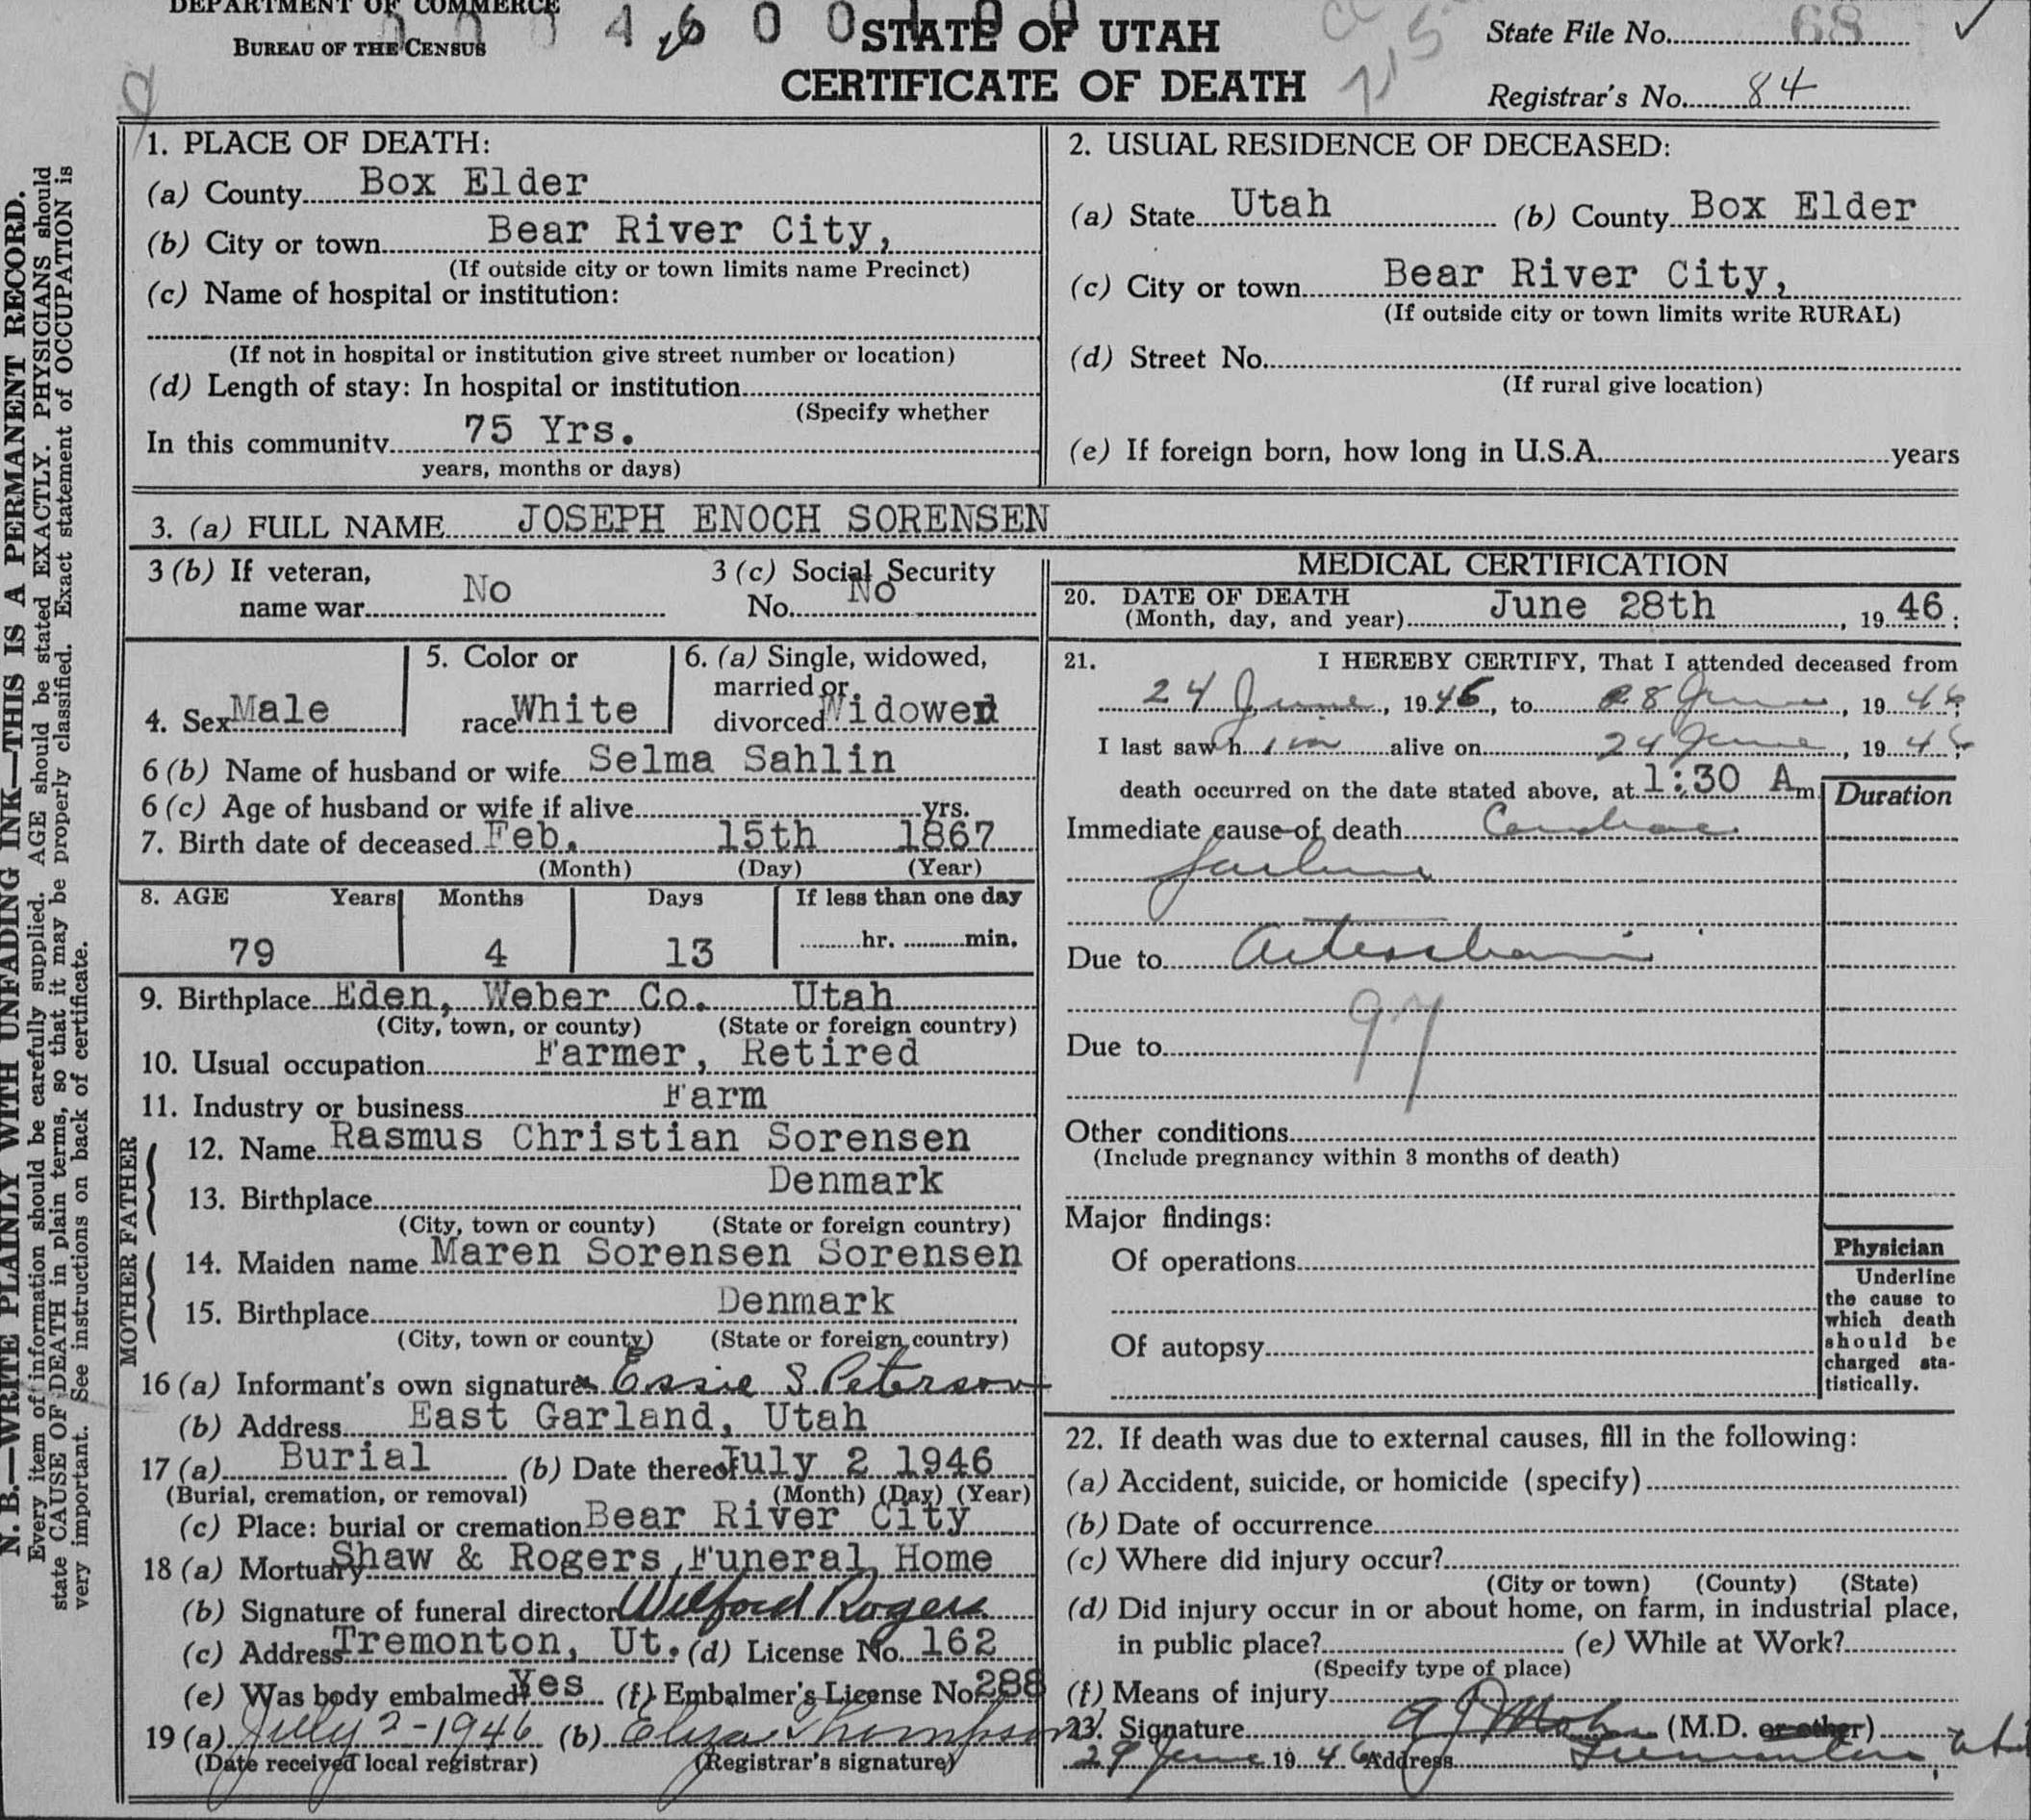 DEPARTMENT OF COMMERCE
BUREAU OF THE CENSUS
STATE OF UTAH
CERTIFICATE OF DEATH
State File No. 68
Registrar's No. 84
N. B.—WRITE PLAINLY WITH UNFADING INK—THIS IS A PERMANENT RECORD.
Every item of information should be carefully supplied. AGE should be stated EXACTLY. PHYSICIANS should
state CAUSE OF DEATH in plain terms, so that it may be properly classified. Exact statement of OCCUPATION is
very important. See instructions on back of certificate.
1. PLACE OF DEATH:
(a) County Box Elder
(b) City or town Bear River City,
(If outside city or town limits name Precinct)
(c) Name of hospital or institution:
(If not in hospital or institution give street number or location)
(d) Length of stay: In hospital or institution
(Specify whether
In this community 75 Yrs.
years, months or days)
2. USUAL RESIDENCE OF DECEASED:
(a) State Utah (b) County Box Elder
(c) City or town Bear River City,
(If outside city or town limits write RURAL)
(d) Street No.
(If rural give location)
(e) If foreign born, how long in U.S.A. years
3. (a) FULL NAME JOSEPH ENOCH SORENSEN
3 (b) If veteran,
name war No
3 (c) Social Security
No. No
4. Sex Male
5. Color or
race White
6. (a) Single, widowed,
married or
divorced Widowed
6 (b) Name of husband or wife Selma Sahlin
6 (c) Age of husband or wife if alive yrs.
7. Birth date of deceased Feb. 15th 1867
(Month) (Day) (Year)
8. AGE Years Months Days If less than one day
79 4 13 hr. min.
9. Birthplace Eden, Weber Co. Utah
(City, town, or county) (State or foreign country)
10. Usual occupation Farmer, Retired
11. Industry or business Farm
FATHER
12. Name Rasmus Christian Sorensen
13. Birthplace Denmark
(City, town or county) (State or foreign country)
MOTHER
14. Maiden name Maren Sorensen Sorensen
15. Birthplace Denmark
(City, town or county) (State or foreign country)
16 (a) Informant's own signature Essie S. Peterson
(b) Address East Garland, Utah
17 (a) Burial (b) Date thereof July 2 1946
(Burial, cremation, or removal) (Month) (Day) (Year)
(c) Place: burial or cremation Bear River City
18 (a) Mortuary Shaw & Rogers Funeral Home
(b) Signature of funeral director Wilford Rogers
(c) Address Tremonton, Ut. (d) License No. 162
(e) Was body embalmed? Yes (f) Embalmer's License No. 288
19 (a) July 2-1946 (b) Eliza Thompson
(Date received local registrar) (Registrar's signature)
MEDICAL CERTIFICATION
20. DATE OF DEATH
(Month, day, and year) June 28th, 19 46;
21. I HEREBY CERTIFY, That I attended deceased from
24 June, 19 46, to 28 June, 19 46;
I last saw h im alive on 24 June, 19 46;
death occurred on the date stated above, at 1:30 A m
Duration
Immediate cause of death Cardiac
failure
Due to
97
Due to
Other conditions
(Include pregnancy within 3 months of death)
Major findings:
Of operations
Of autopsy
Physician
Underline
the cause to
which death
should be
charged sta-
tistically.
22. If death was due to external causes, fill in the following:
(a) Accident, suicide, or homicide (specify)
(b) Date of occurrence
(c) Where did injury occur?
(City or town) (County) (State)
(d) Did injury occur in or about home, on farm, in industrial place,
in public place? (e) While at Work?
(Specify type of place)
(f) Means of injury
23. Signature (M.D. or other)
29 June 19 46 Address Tremonton, Utah